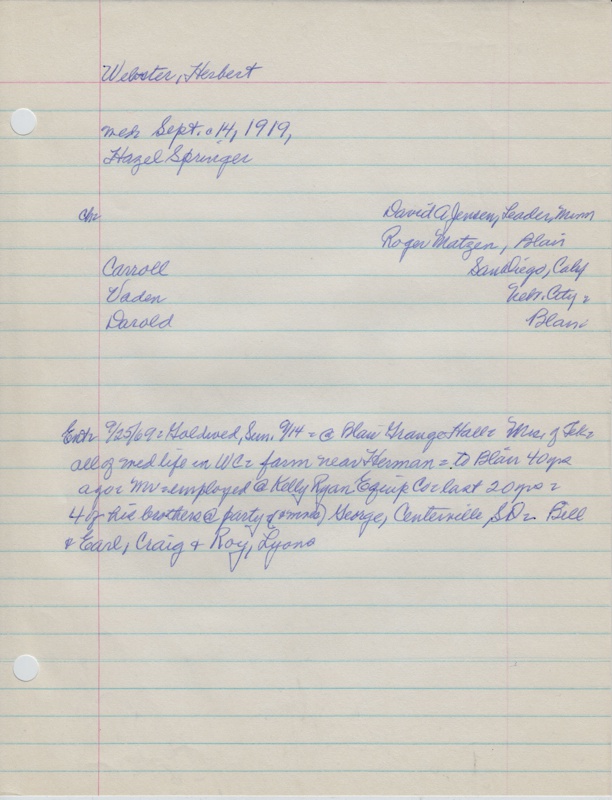 Webster, Herbert
mer Sept. 14, 1919,
Hazel Springer
ch= David A Jensen, Leader, Minn
Roger Matzen, Blair
Carroll San Diego, Calif
Vaden Neb. City =
Darold Blair
Ent= 9/25/69 = Gol. wed, Sun. 9/14 = @ Blair Grange Hall =
all of med life in WC = farm near Herman = to Blair 40 yrs
ago = Mr = employed @ Kelly Ryan Equip Co = last 20 yrs =
4 of his brothers @ party George, Centerville SD = Bill
& Earl, Craig & Roy, Lyons